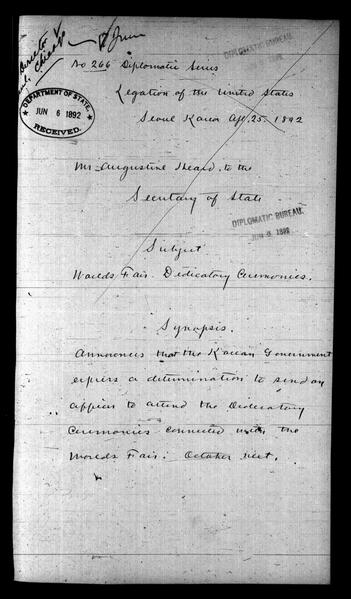 Chicago
17 June
No 266 Diplomatic Series
DIPLOMATIC BUREAU
Legation of the United States
DEPARTMENT OF STATE,
JUN 6 1892
RECEIVED.
Seoul Korea Apl. 25. 1892
Mr Augustine Heard, to the
Secretary of State
DIPLOMATIC BUREAU.
JUN 8 1892
Subject
Worlds Fair. Dedicatory Ceremonies.
Synopsis.
Announces that the Korean Government
express a determination to send an
officer to attend the Dedicatory
Ceremonies connected with the
Worlds Fair: October next.